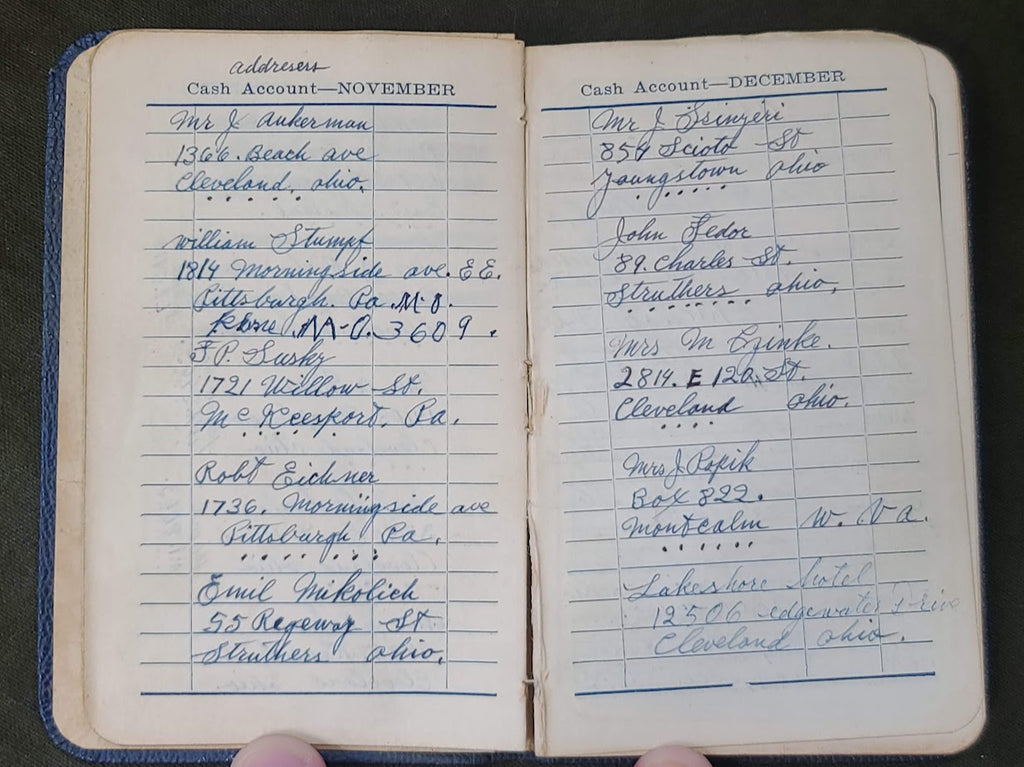 addresers
Cash Account—NOVEMBER
Mr J. Aukerman
1366. Beach ave
Cleveland, ohio.
William Stumpf
1814 Morningside ave. E.E.
Pittsburgh. Pa. M-O.
M-O. 3609.
F.P. Susky
1721 Willow St.
Mc Keesport. Pa.
Robt Eichner
1736. Morningside ave
Pittsburgh Pa.
Emil Mikolich
55 St
Struthers ohio.
Cash Account—DECEMBER
Mr J.
854 Scioto St
Youngstown ohio
John Fedor
89. Charles St.
Struthers ohio.
Mrs M
2814. E 120. St.
Cleveland ohio.
Mrs J Popik
Box 822.
Montcalm W. Va.
Lakeshore Hotel
12506 edgewater Drive
Cleveland ohio.